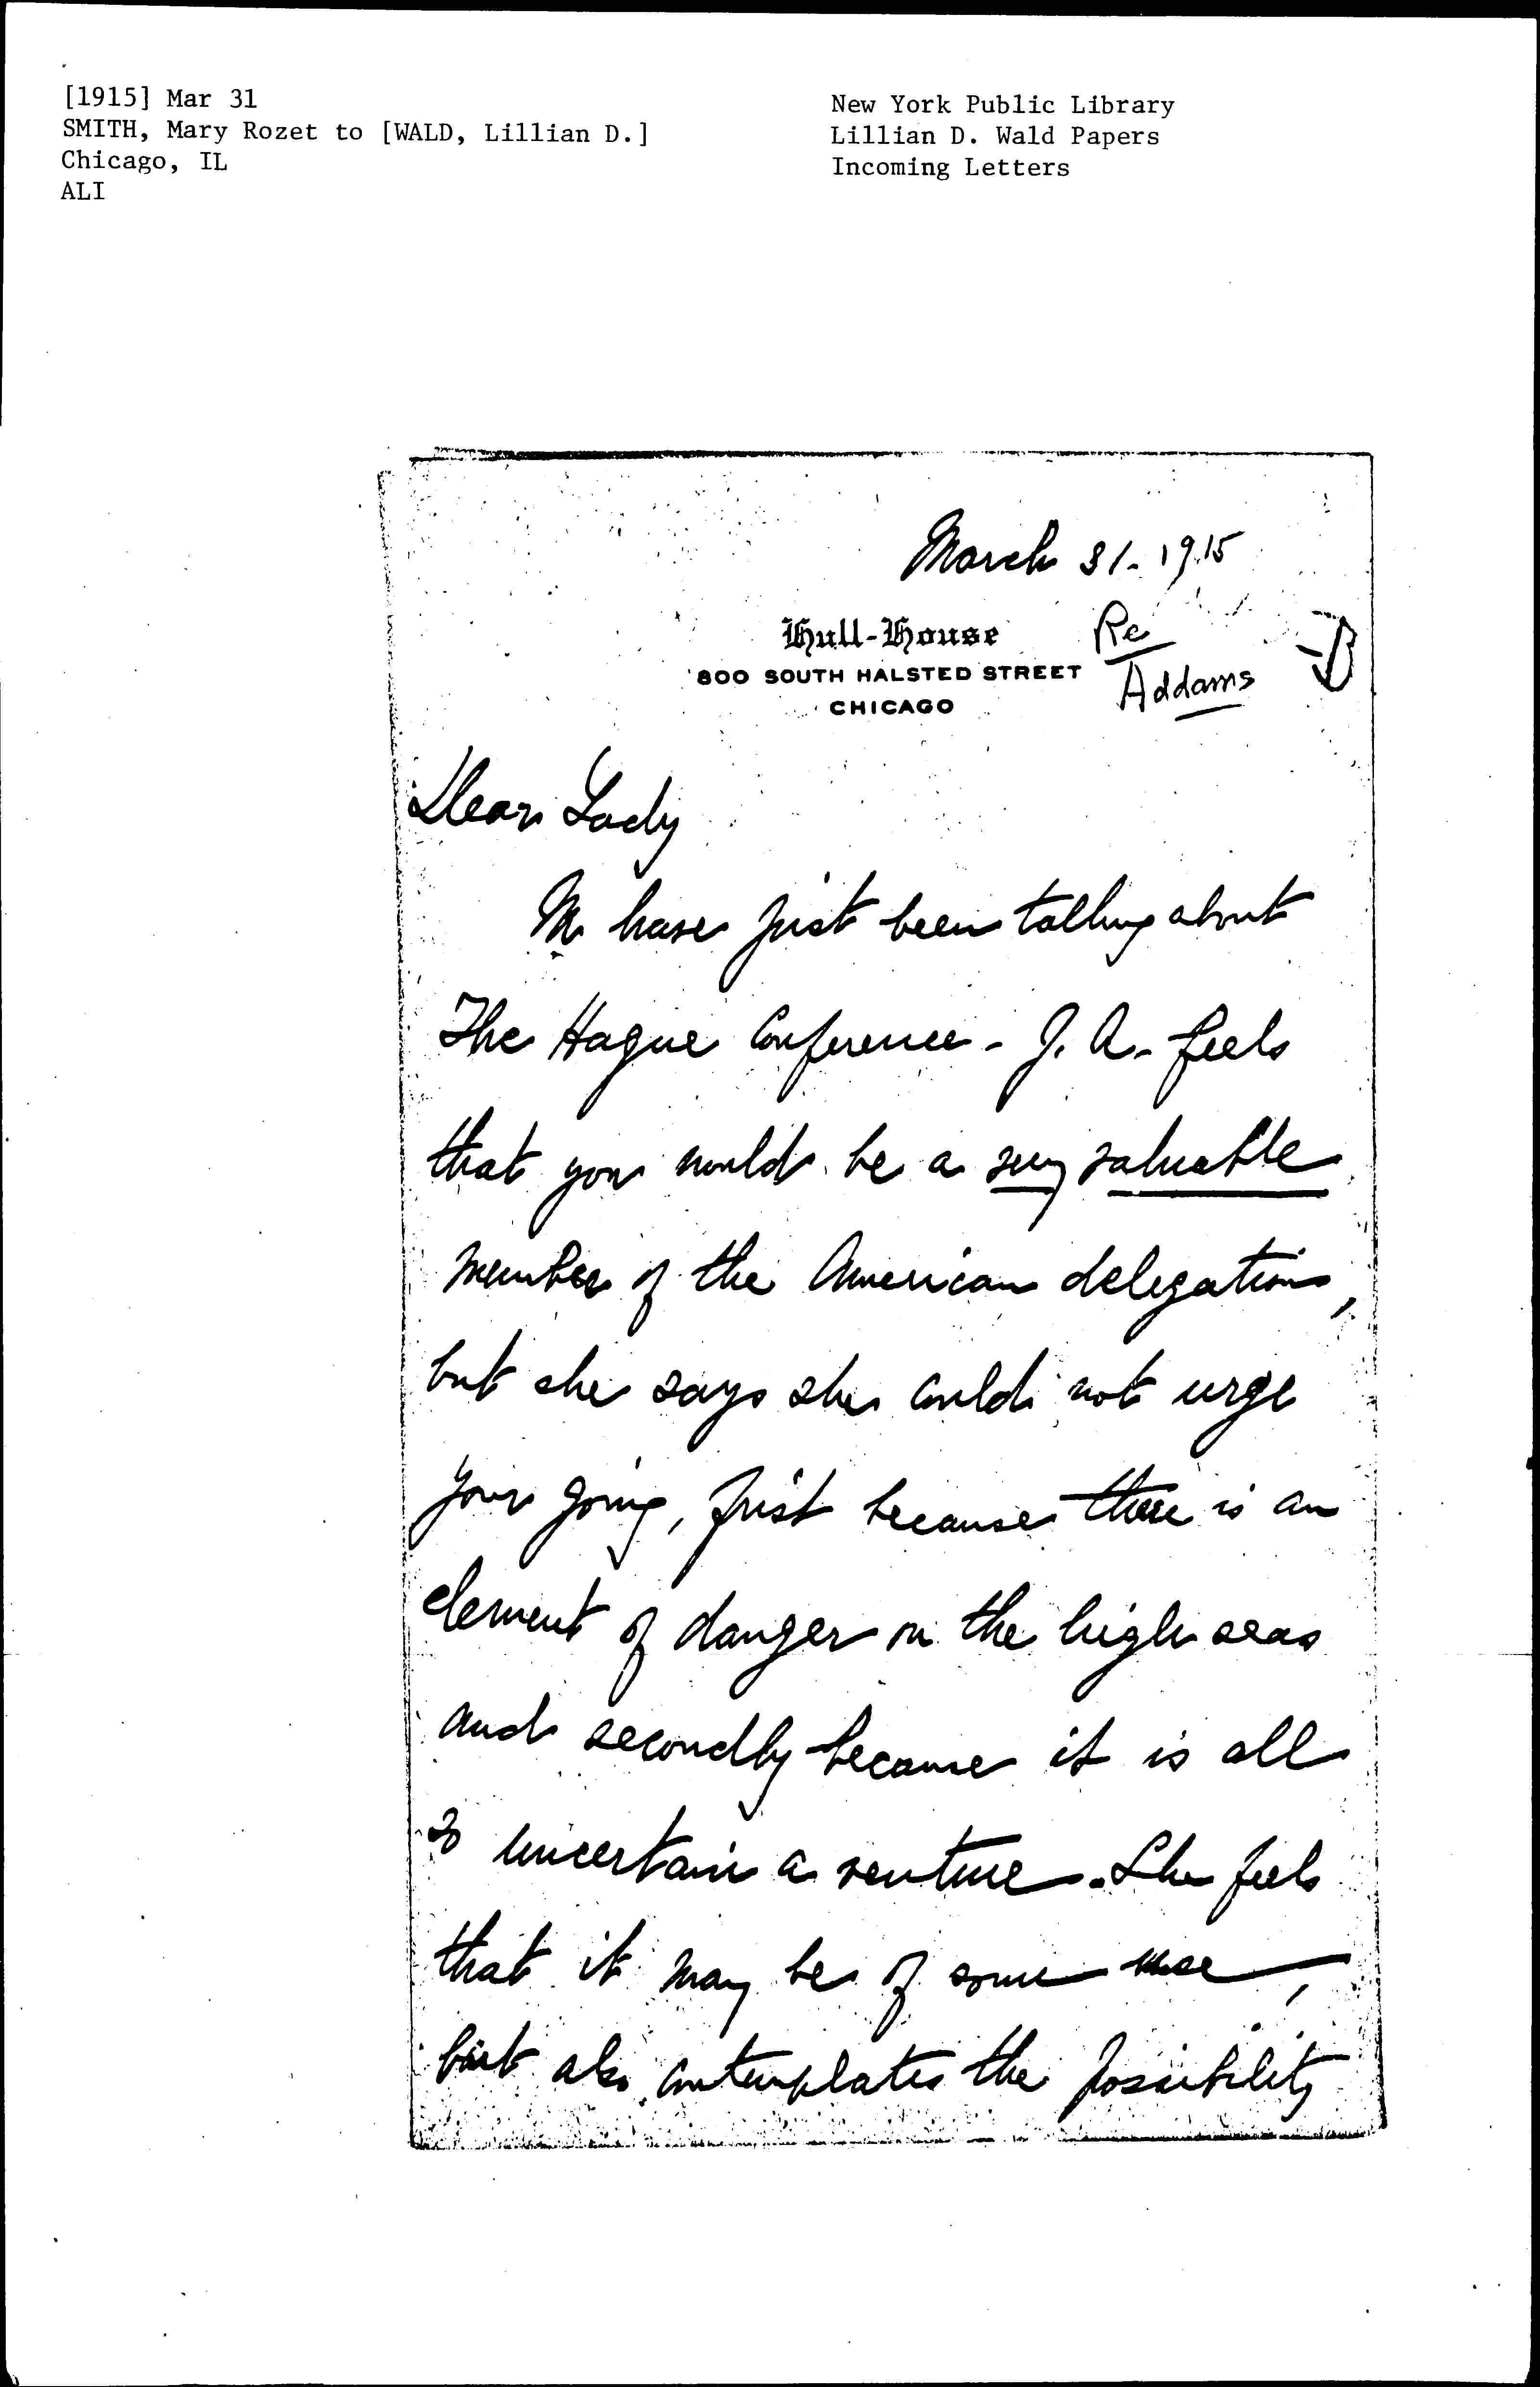 [1915] Mar 31
SMITH, Mary Rozet to [WALD, Lillian D.]
Chicago, IL
ALI
New York Public Library
Lillian D. Wald Papers
Incoming Letters
March 31. 1915
Hull-House
800 SOUTH HALSTED STREET
CHICAGO
Re
Addams
Dear Lady
We have just been talking about
The Hague Conference - J. A. feels
that you would be a very valuable
member of the American delegation,
but she says she could not urge
your going, first because there is an
element of danger on the high seas
and secondly because it is all
so uncertain a venture. She feels
that it may be of some use,
but also contemplates the possibility